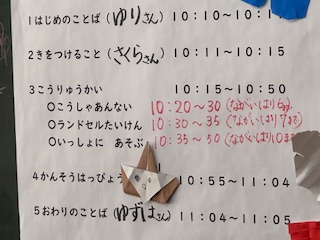 1はじめのことば(ゆりさん) 10:10~10:1
2きをつけること(さくらさん) 10:11~10:15
3こうりゅうかい 10:15~10:50
○こうしゃあんない 10:20~30(ながいはり6
○ランドセルたいけん 10:30~35(ながいはり7まで)
○いっしょに あそぶ 10:35~50(ながいはり10まで
4かんそうはっぴょう 10:55~11:04
5おわりのことば(ゆずはさん) 11:04~11:05